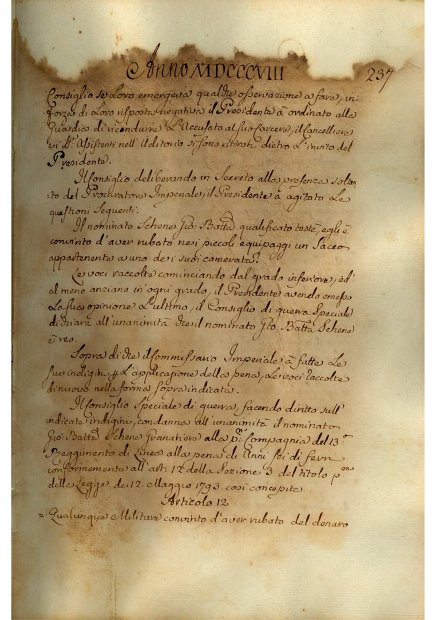 Anno MDCCCVIII
237
Consiglio se Loro emergeva qualche osservazione a fare, in
forza di Loro risposta negativa il Presidente à ordinato alla
Guardia di ricondurre L'accusato al suo carcere, il cancelliere
Assistenti nell'Uditorio si sono ritirati dietro L'invito del
Presidente.
Il Consiglio deliberando in Secreto alla presenza
del Procuratore Imperiale, il Presidente à agitato Le
questioni Seguenti.
Il nominato Schene Gio: Batta qualificato egli è
convinto d'aver rubato nei piccoli equipaggi un Sacco
appartenente a uno de' suoi camerata?
Le voci raccolte cominciando dal grado inferiore, ed
al meno anziano in ogni grado, il Presidente avendo emesso
La sua opinione L'ultimo, il Consiglio di guerra Speciale
dichiara all'unanimità che il nominato Gio. Batta Schene
è reo.
Sopra di che il Commissario Imperiale à fatte Le
sue L'applicazione della pena, Le voci raccolte
di nuovo nella forma sopra indicata.
Il Consiglio Speciale di guerra, facendo diritto sull'
condanna all'unanimità il nominato
Gio: Batta Schene Granatiere alla pa. Compagnia del 13°.
Reggimento di Linea alla pena di Anni Sei di ferri
conformemente all'art: 12 della Sezione 3 del titolo pmo
della Legge de 12. Maggio 1793. così concepito
Articolo 12
= Qualunque Militare convinto d'aver rubato del denaro